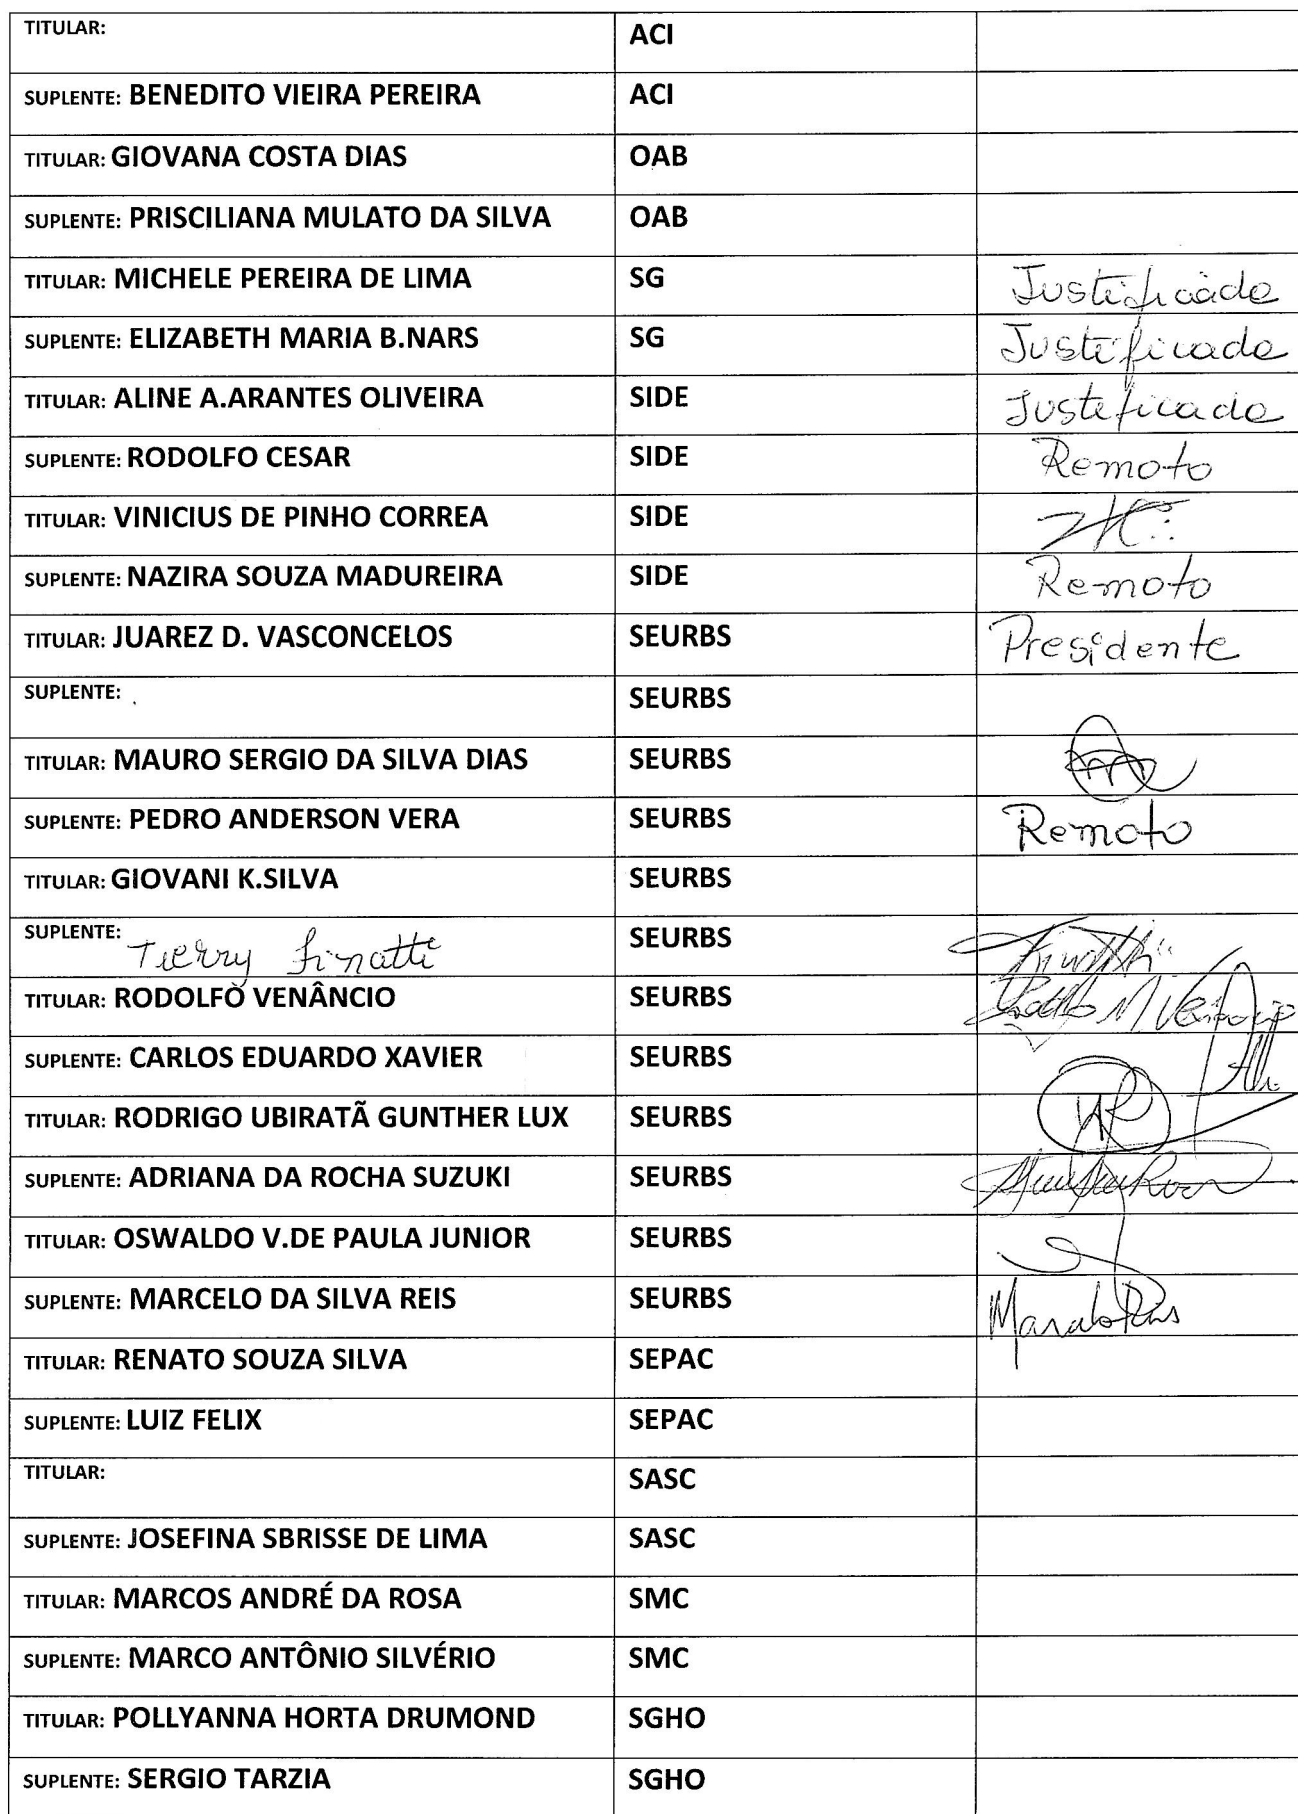 TITULAR: ACI
SUPLENTE: BENEDITO VIEIRA PEREIRA ACI
TITULAR: GIOVANA COSTA DIAS OAB
SUPLENTE: PRISCILIANA MULATO DA SILVA OAB
TITULAR: MICHELE PEREIRA DE LIMA SG Justificado
SUPLENTE: ELIZABETH MARIA B.NARS SG Justificado
TITULAR: ALINE A.ARANTES OLIVEIRA SIDE Justificado
SUPLENTE: RODOLFO CESAR SIDE Remoto
TITULAR: VINICIUS DE PINHO CORREA SIDE
SUPLENTE: NAZIRA SOUZA MADUREIRA SIDE Remoto
TITULAR: JUAREZ D. VASCONCELOS SEURBS Presidente
SUPLENTE: SEURBS
TITULAR: MAURO SERGIO DA SILVA DIAS SEURBS
SUPLENTE: PEDRO ANDERSON VERA SEURBS Remoto
TITULAR: GIOVANI K.SILVA SEURBS
SUPLENTE: SEURBS
TITULAR: RODOLFO VENÂNCIO SEURBS
SUPLENTE: CARLOS EDUARDO XAVIER SEURBS
TITULAR: RODRIGO UBIRATÃ GUNTHER LUX SEURBS
SUPLENTE: ADRIANA DA ROCHA SUZUKI SEURBS
TITULAR: OSWALDO V.DE PAULA JUNIOR SEURBS
SUPLENTE: MARCELO DA SILVA REIS SEURBS
TITULAR: RENATO SOUZA SILVA SEPAC
SUPLENTE: LUIZ FELIX SEPAC
TITULAR: SASC
SUPLENTE: JOSEFINA SBRISSE DE LIMA SASC
TITULAR: MARCOS ANDRÉ DA ROSA SMC
SUPLENTE: MARCO ANTÔNIO SILVÉRIO SMC
TITULAR: POLLYANNA HORTA DRUMOND SGHO
SUPLENTE: SERGIO TARZIA SGHO